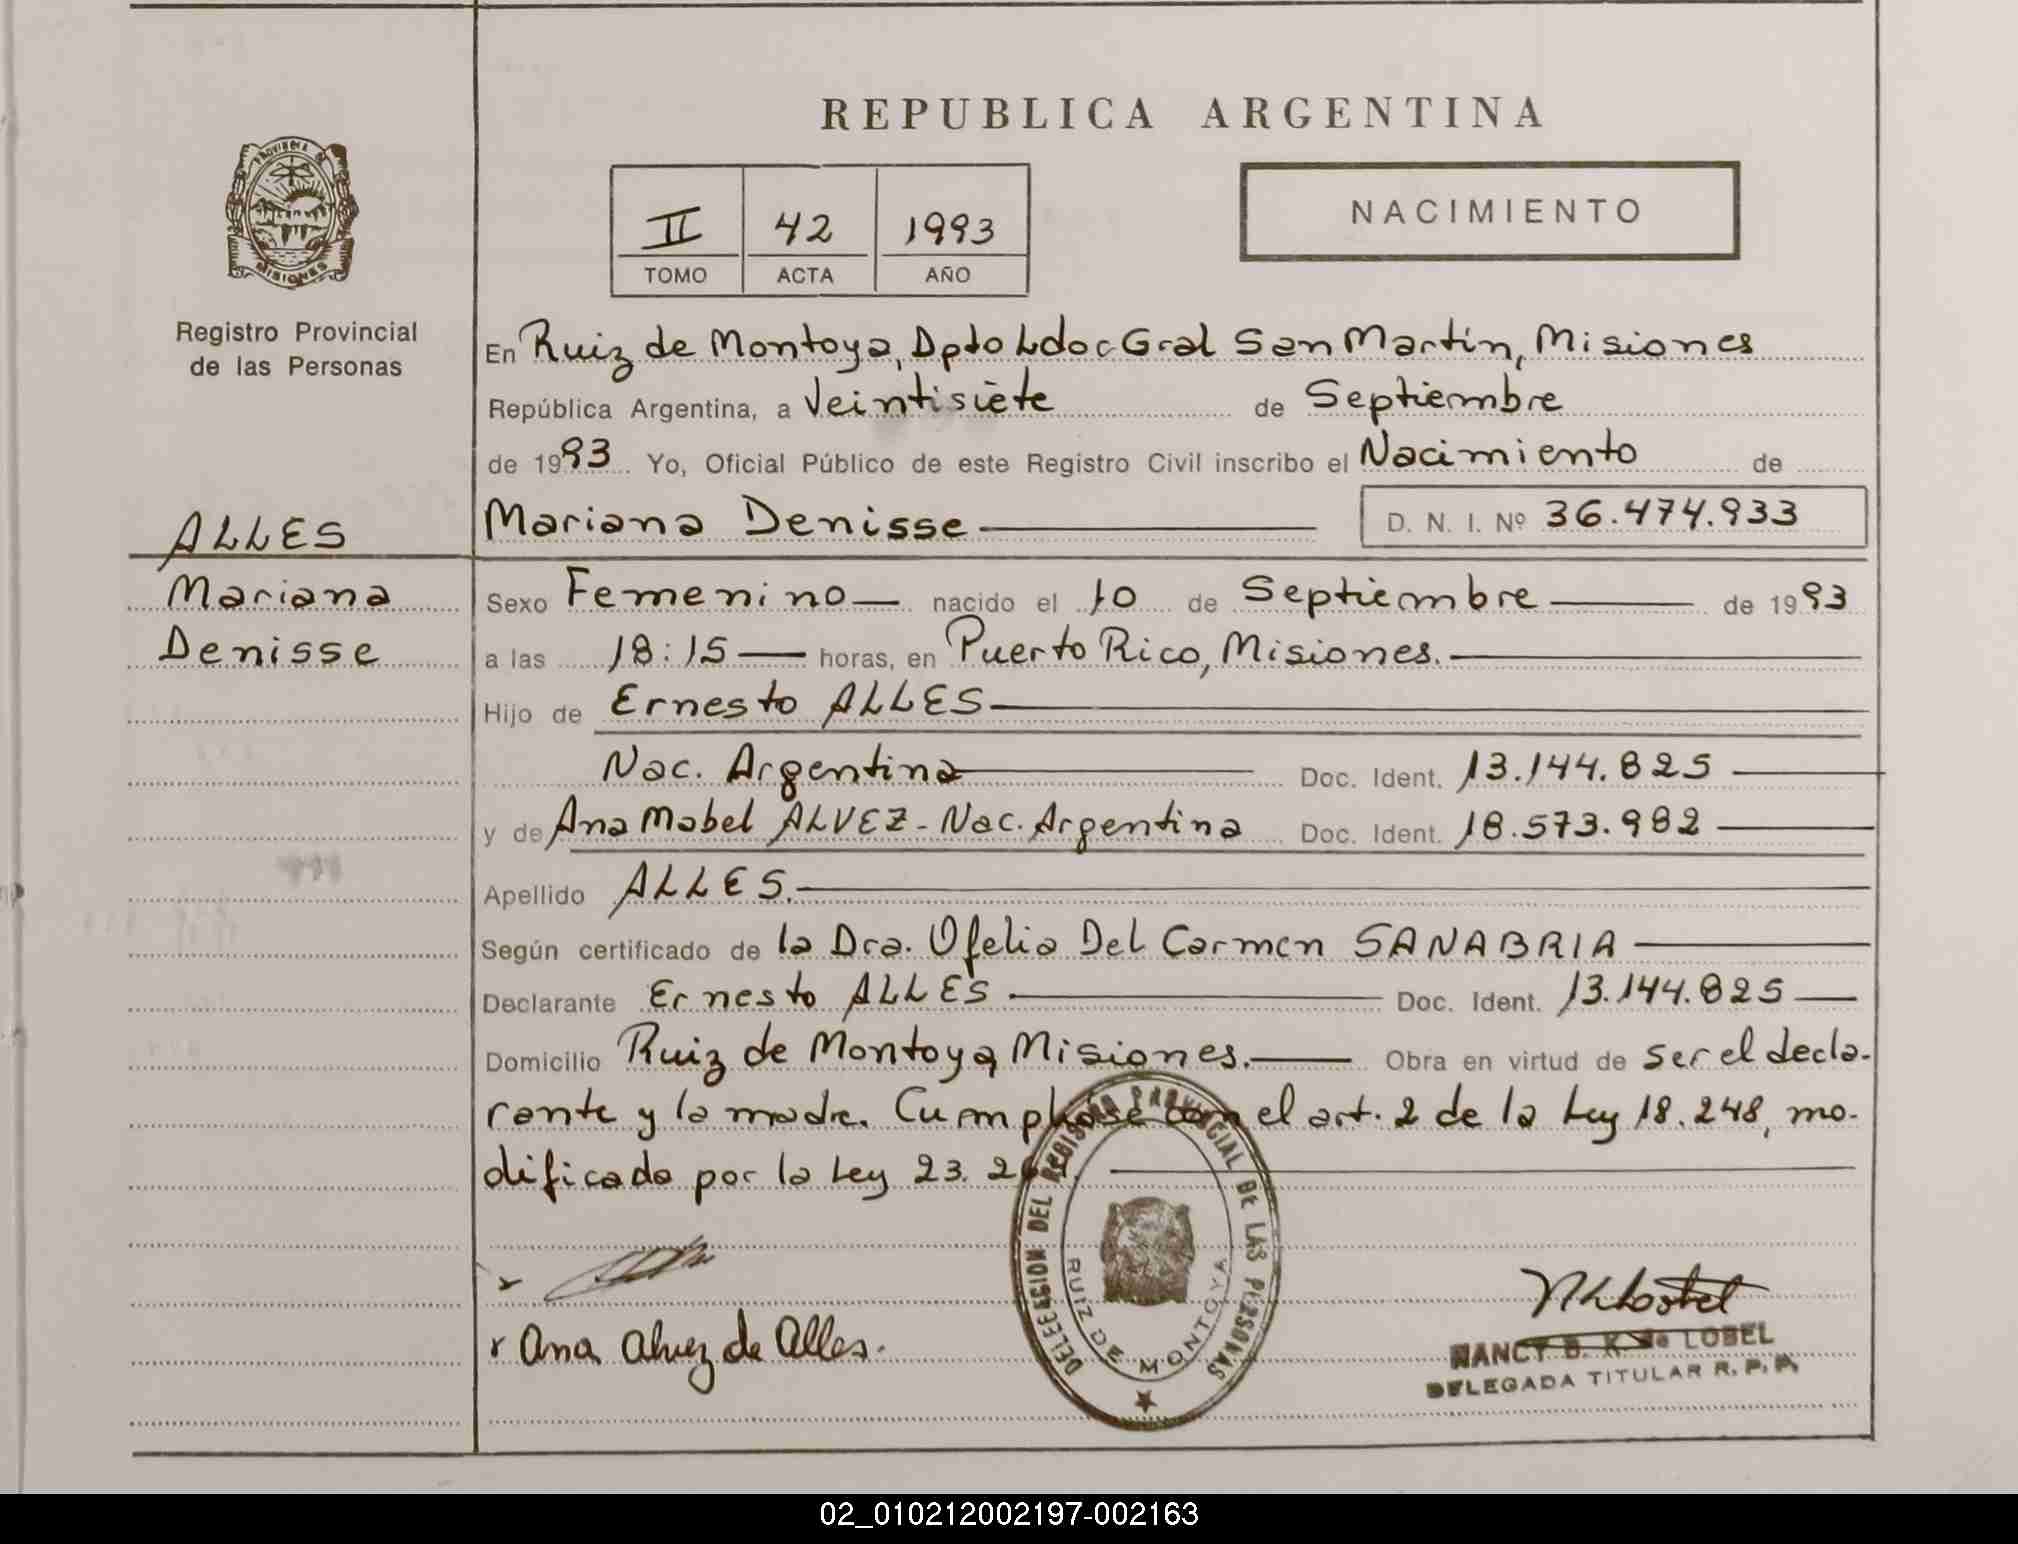 REPUBLICA ARGENTINA
PROVINCIA DE
MISIONES
Registro Provincial
de las Personas
II 42 1993
TOMO ACTA AÑO
NACIMIENTO
En Ruiz de Montoya, Dpto Ldor Gral San Martín, Misiones
República Argentina, a Veintisiete de Septiembre
de 1993 Yo, Oficial Público de este Registro Civil inscribo el Nacimiento de
Mariana Denisse D. N. I. Nº 36.474.933
ALLES
Mariana
Denisse
Sexo Femenino nacido el 10 de Septiembre de 1993
a las 18:15 horas, en Puerto Rico, Misiones.
Hijo de Ernesto ALLES
Nac. Argentina Doc. Ident. 13.144.825
y de Ana Mabel ALVEZ - Nac. Argentina Doc. Ident. 18.573.982
Apellido ALLES.
Según certificado de la Dra. Ofelia Del Carmen SANABRIA
Declarante Ernesto ALLES Doc. Ident. 13.144.825
Domicilio Ruiz de Montoya, Misiones. Obra en virtud de ser el decla-
rante y la madre. Cumplióse con el art. 2 de la Ley 18.248, mo-
dificado por la Ley 23.
DELEGACION DEL REGISTRO PROVINCIAL DE LAS PERSONAS
RUIZ DE MONTOYA
Ana Alvez de Alles.
NANCY B. K. de LOBEL
DELEGADA TITULAR R. P. P.
02_010212002197-002163